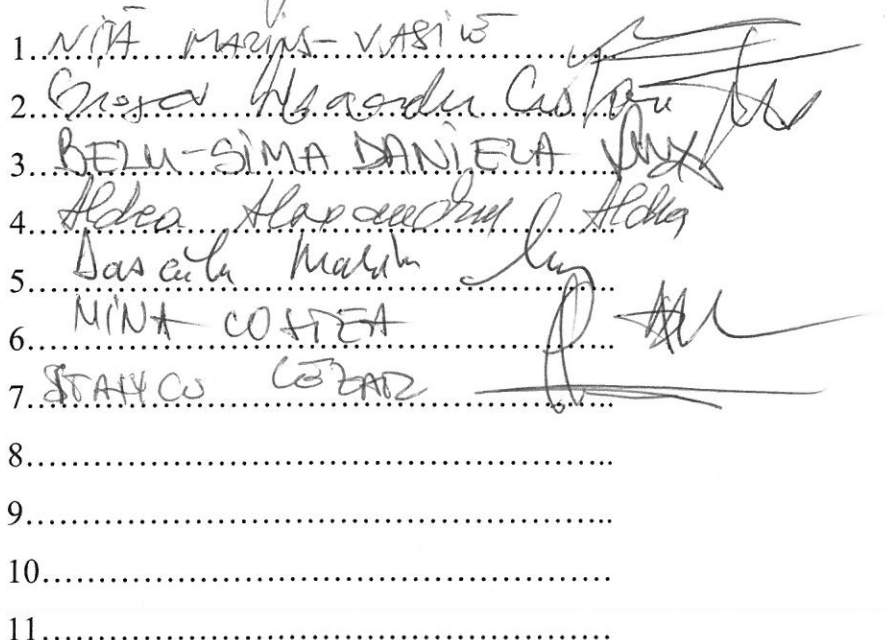 1. NIȚĂ MARIUS-VASILE
2. Alexandru Cristian
3. BELU-SIMA DANIELA
4. Aldea Alexandru Aldea
5. Dascălu
6. MINA COSTEA
7. STANCU CEZAR
8.
9.
10.
11.